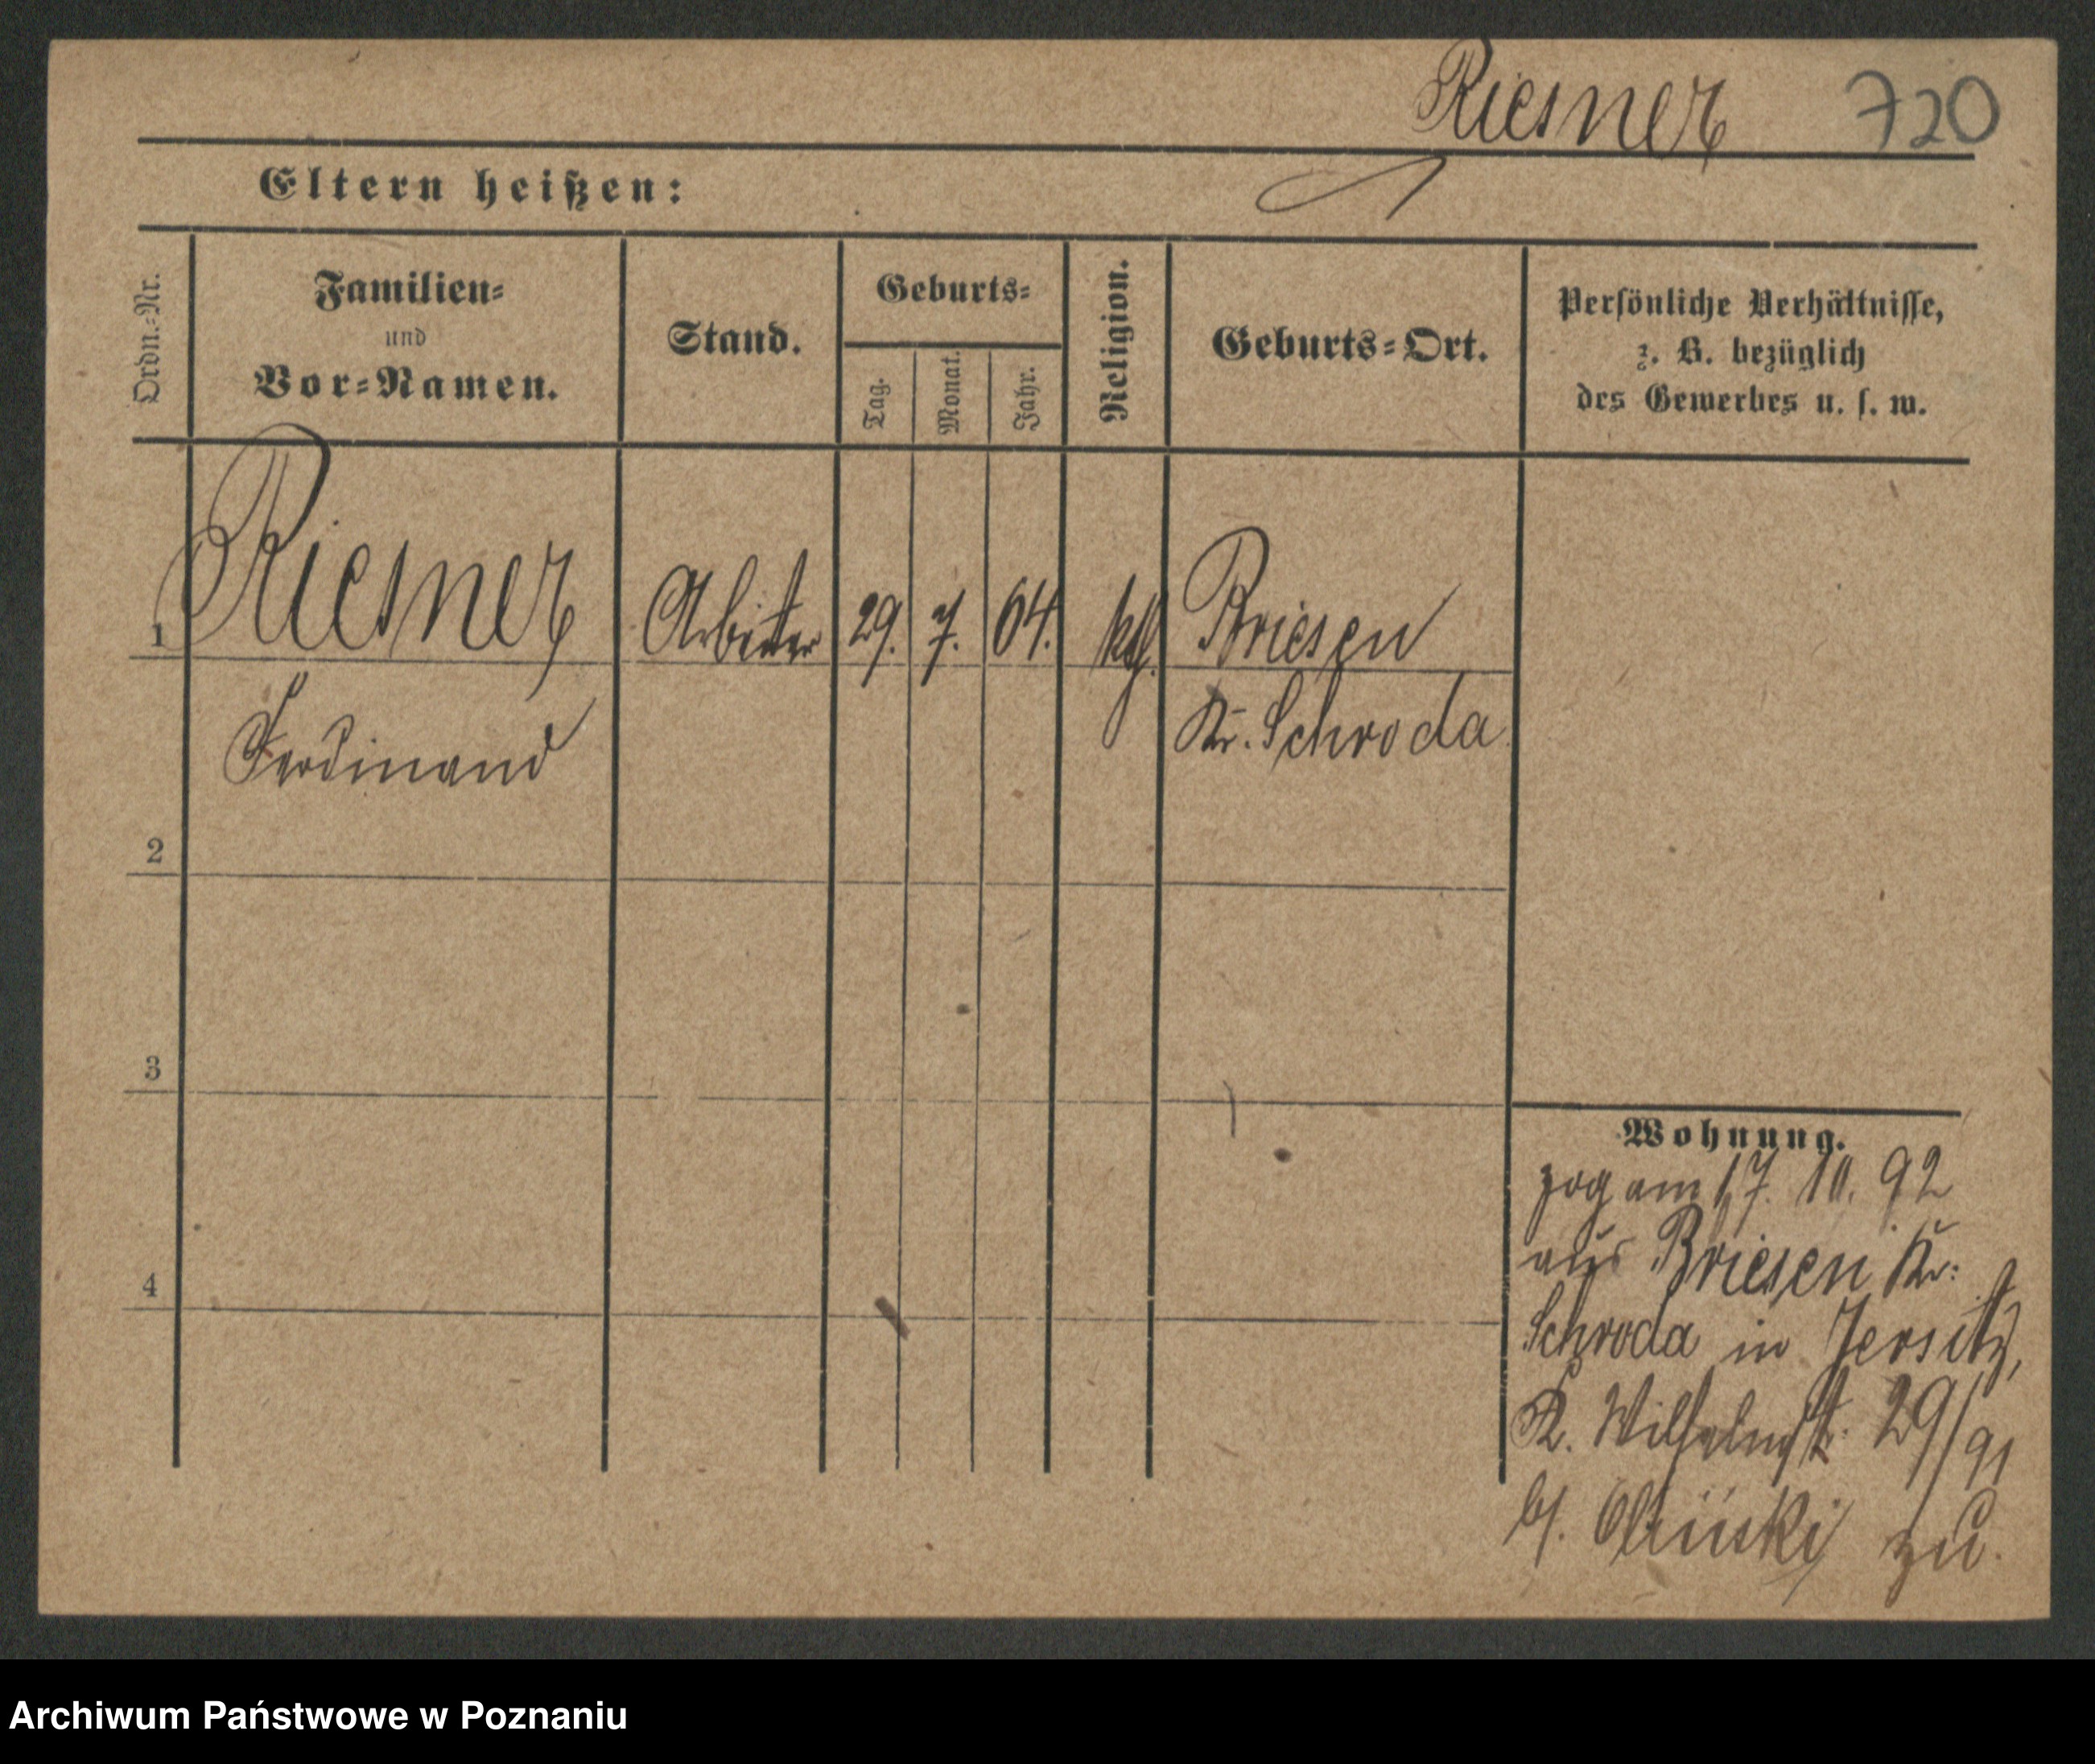 Riesner 720
Eltern heißen:
Ordn.-Nr.
Familien-
und
Vor-Namen.
Stand.
Geburts-
Tag.
Monat.
Jahr.
Religion.
Geburts-Ort.
Persönliche Verhältnisse,
z. B. bezüglich
des Gewerbes u. s. w.
1 Riesner Arbeiter 29. 7. 64. kth. Briesen
Ferdinand Kr. Schroda
2
3
4
Wohnung.
zog am 17. 10. 92
aus Briesen Kr.
Schroda in Jersitz,
K. Wilhelmstr. 29/91
b/. zu.
Archiwum Państwowe w Poznaniu